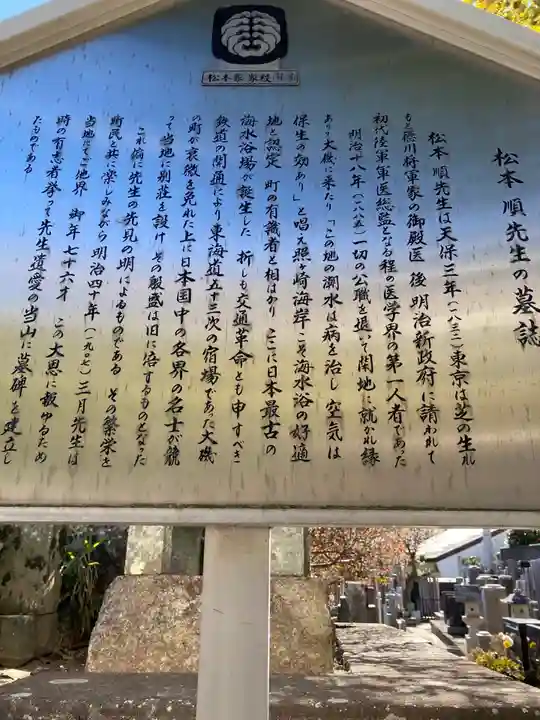 松本家家紋
松本順先生の墓誌
松本順先生は天保三年(一八三二)東京は芝の生れ
もと徳川将軍家の御殿医 後明治新政府に請われて
初代陸軍軍医総監となる程の医学界の第一人者であった
明治十八年(一八八五)一切の公職を退いて閑地に就かれ縁
ありて大磯に来たり「この地の潮水は病を治し空気は
保生の効あり」と唱え照ヶ崎海岸こそ海水浴の好適
地と認定 町の有識者と相はかり ここに日本最古の
海水浴場が誕生した 折しも交通革命とも申すべき
鉄道の開通により東海道五十三次の宿場であった大磯
の町が衰微を免れた上に日本国中の各界の名士が競
って当地に別荘を設け その殷盛は旧に倍するものとなった
これ偏に先生の先見の明によるものである その繁栄を
町民と共に楽しみながら明治四十年(一九〇七)三月先生は
当地にてご他界 御年七十六才 この大恩に報ゆるため
時の有志者挙って先生遺愛の当山に墓碑を建立し
たものである